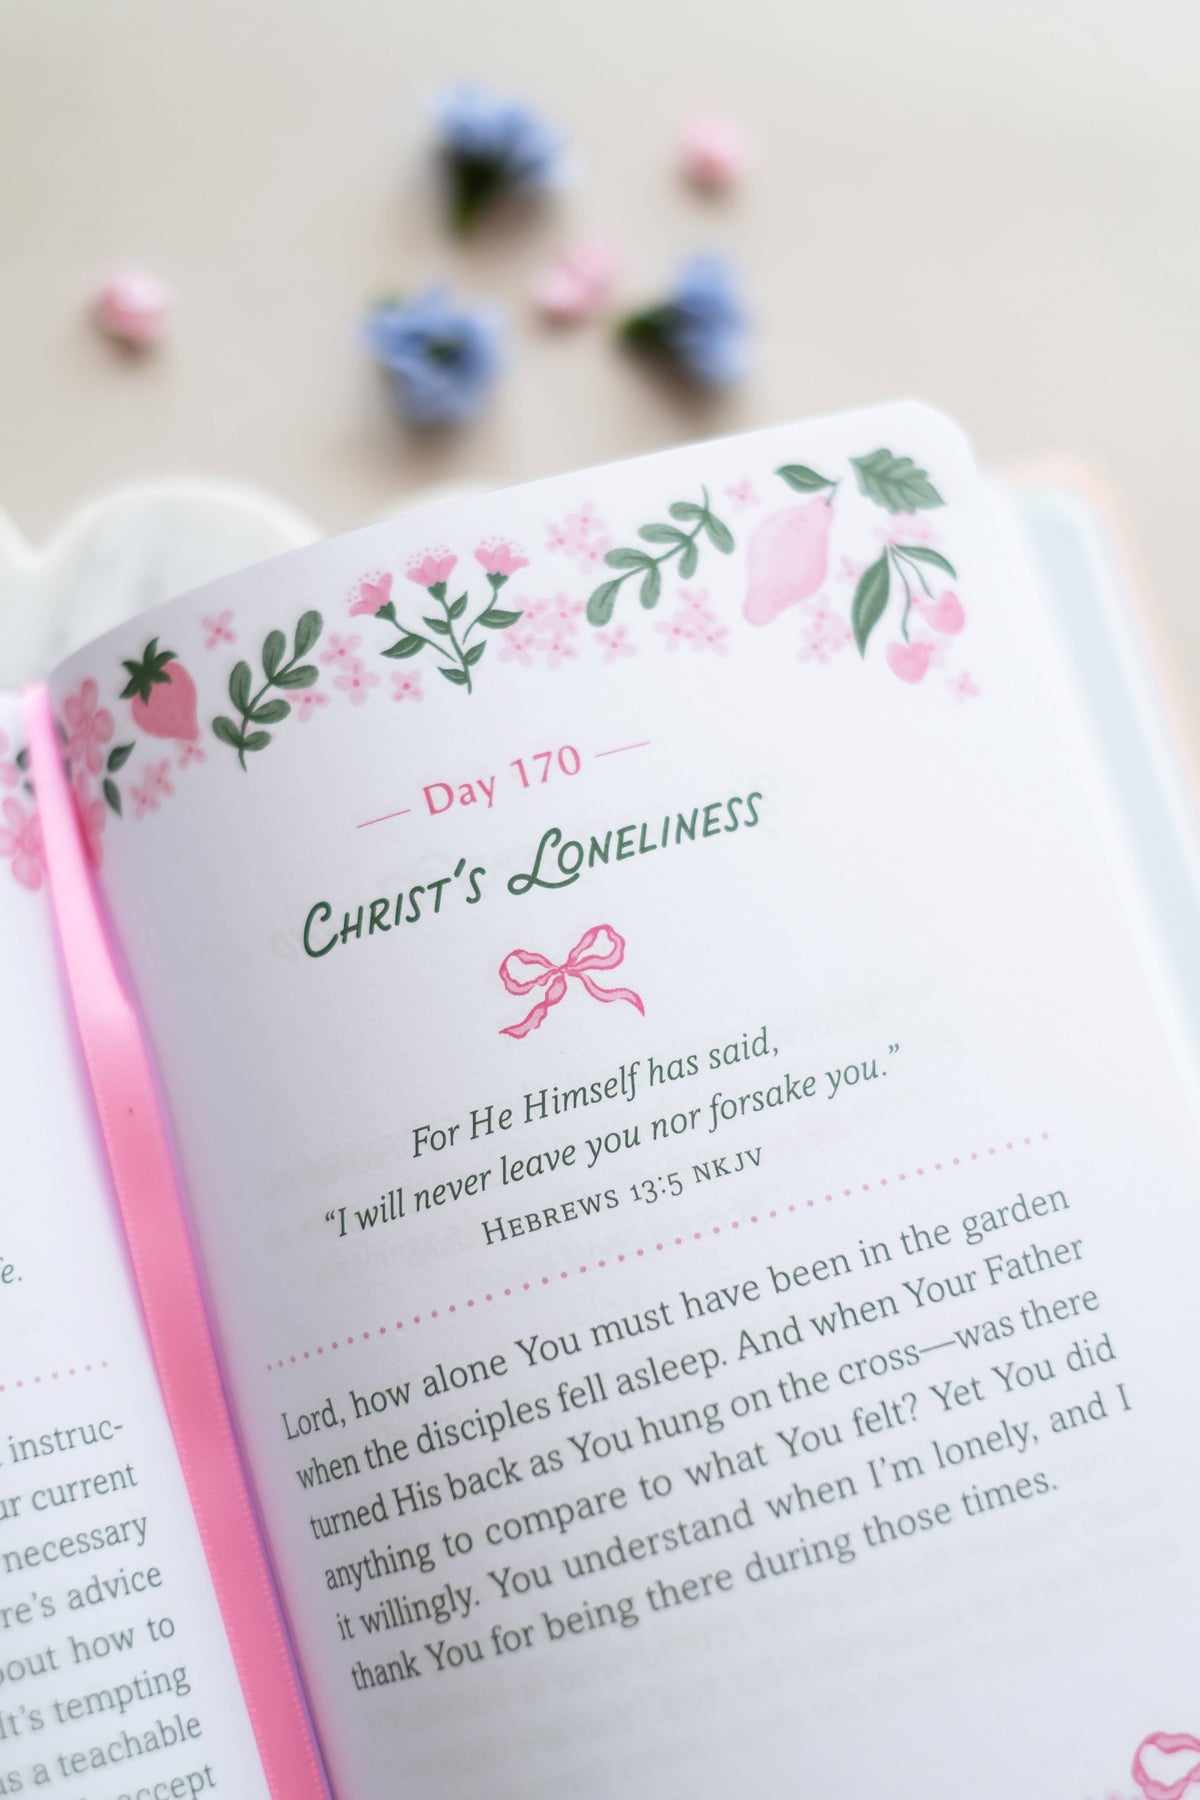 fe.
instruc-
current
necessary
advice
how to
It's tempting
a teachable
accept
— Day 170 —
CHRIST'S LONELINESS
For He Himself has said,
“I will never leave you nor forsake you.”
HEBREWS 13:5 NKJV
Lord, how alone You must have been in the garden
when the disciples fell asleep. And when Your Father
turned His back as You hung on the cross—was there
anything to compare to what You felt? Yet You did
it willingly. You understand when I'm lonely, and I
thank You for being there during those times.